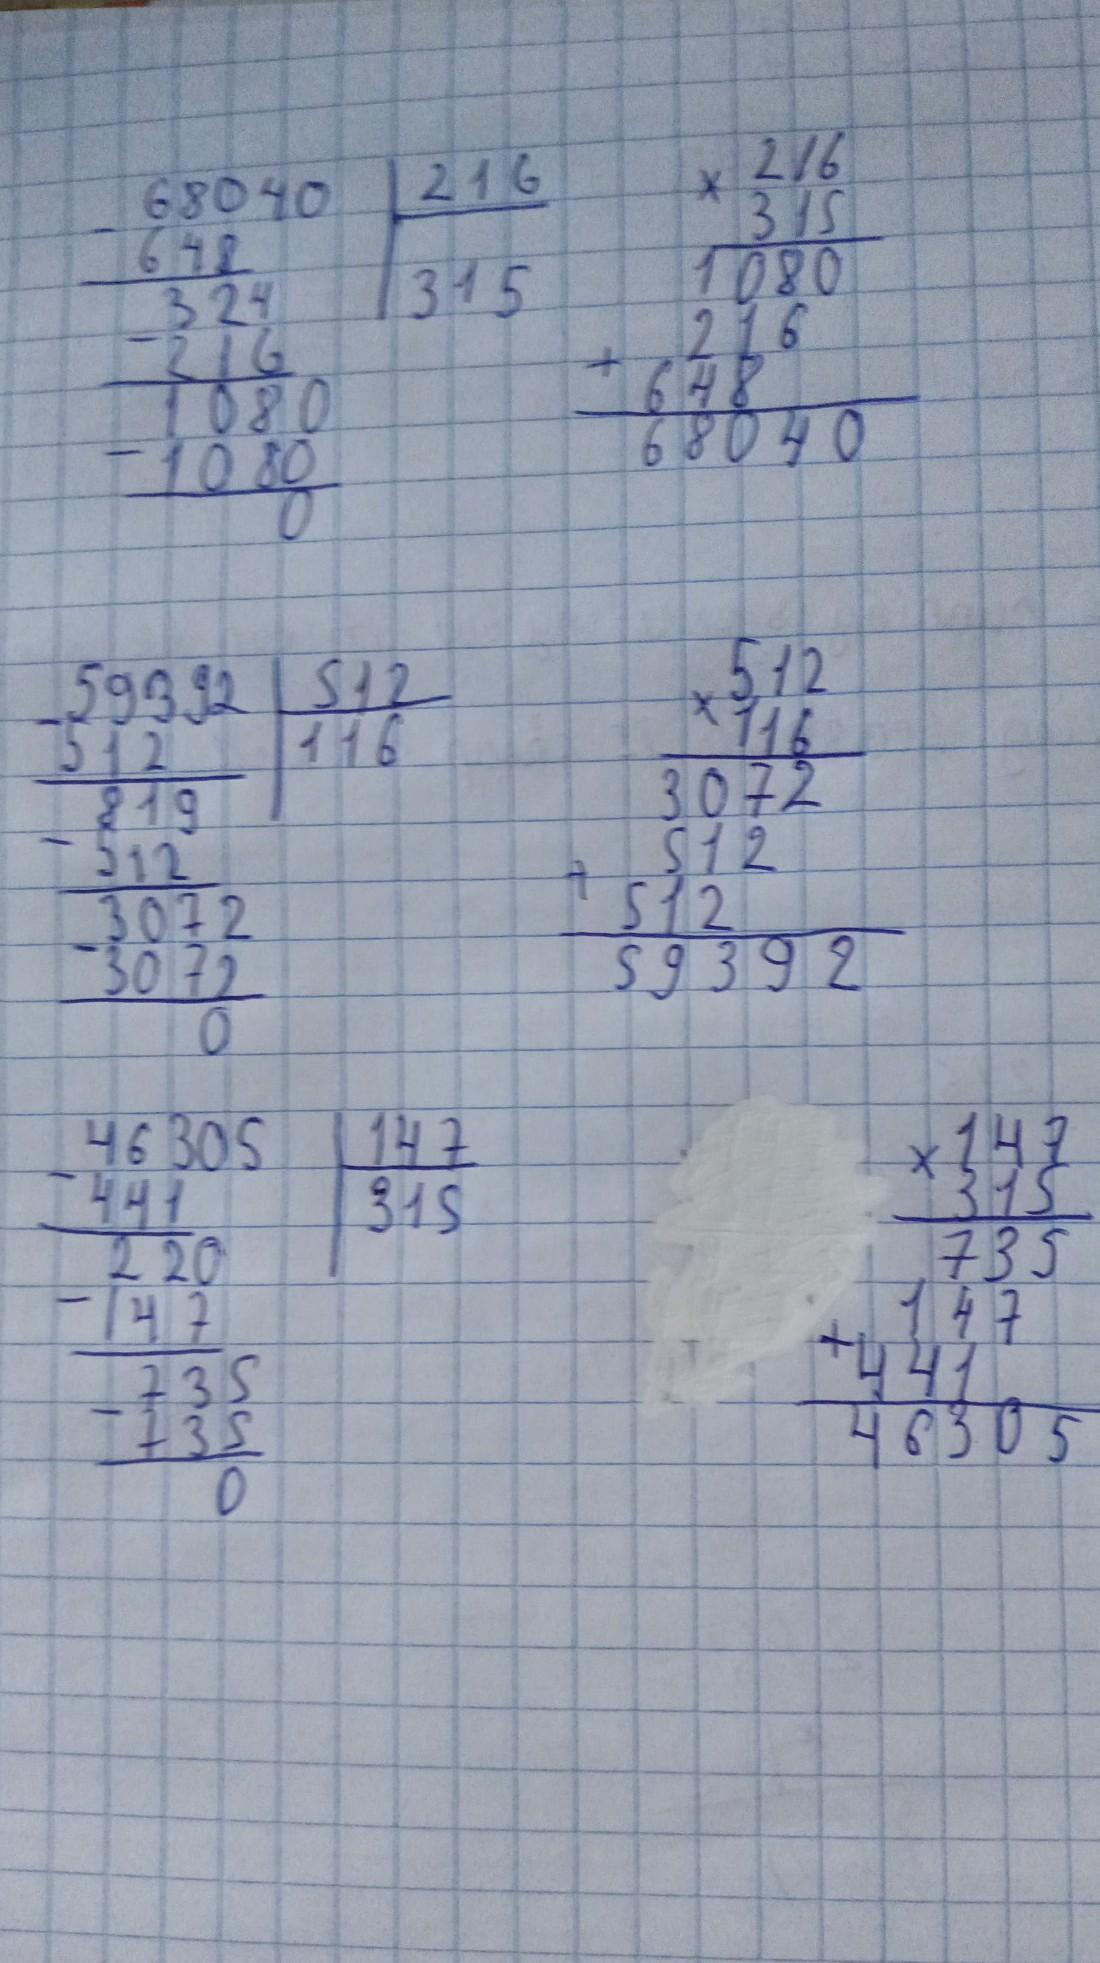 - 68040 | 216
648 | 315
324
- 216
1080
- 1080
0
× 216
315
1080
216
+ 648
68040
- 59392 | 512
512 | 116
819
- 512
3072
- 3072
0
512
× 116
3072
512
+ 512
59392
- 46305 | 147
441 | 315
220
- 147
735
- 735
0
× 147
315
735
147
+ 441
46305